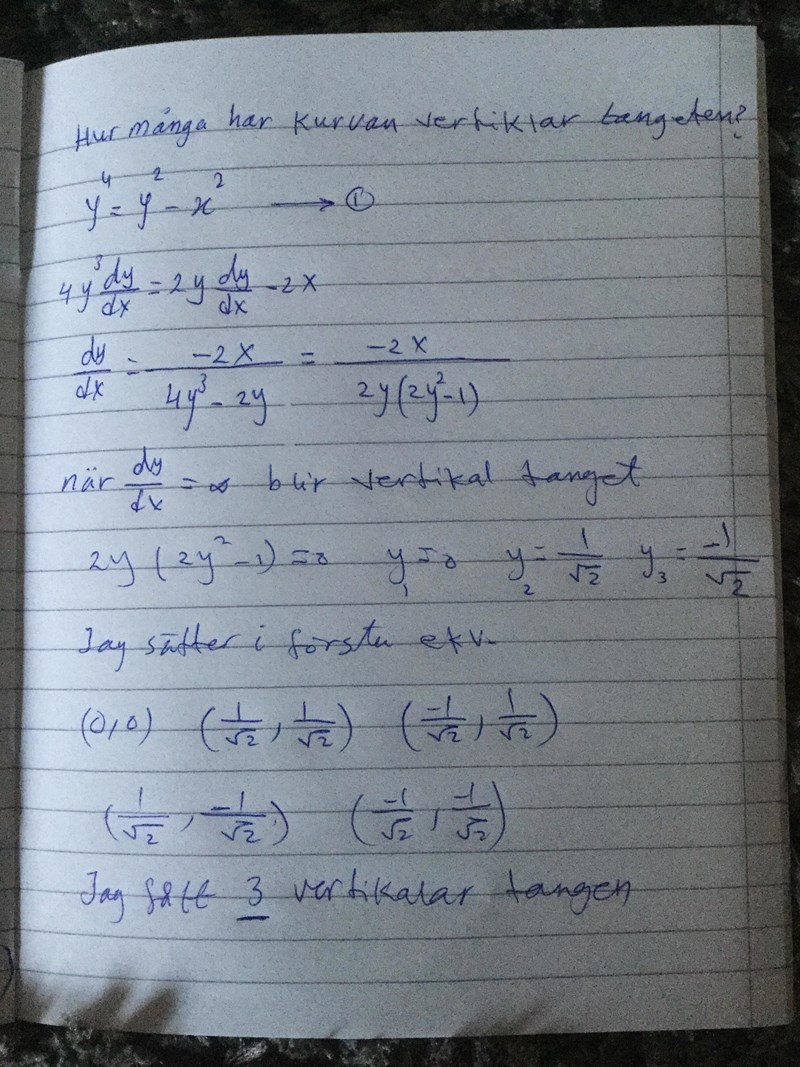 Hur många har kurvan vertiklar tangeten?
y⁴ = y² - x² → ①
4y³ dy/dx = 2y dy/dx - 2x
dy/dx = -2x / (4y³ - 2y) = -2x / (2y(2y² - 1))
när dy/dx = ∞ blir vertikal tanget
2y (2y² - 1) = 0 y₁ = 0 y₂ = 1/√2 y₃ = -1/√2
Jag sätter i första ekv.
(0,0) (1/√2, 1/√2) (-1/√2, 1/√2)
(1/√2, -1/√2) (-1/√2, -1/√2)
Jag fått 3 vertikalar tangen